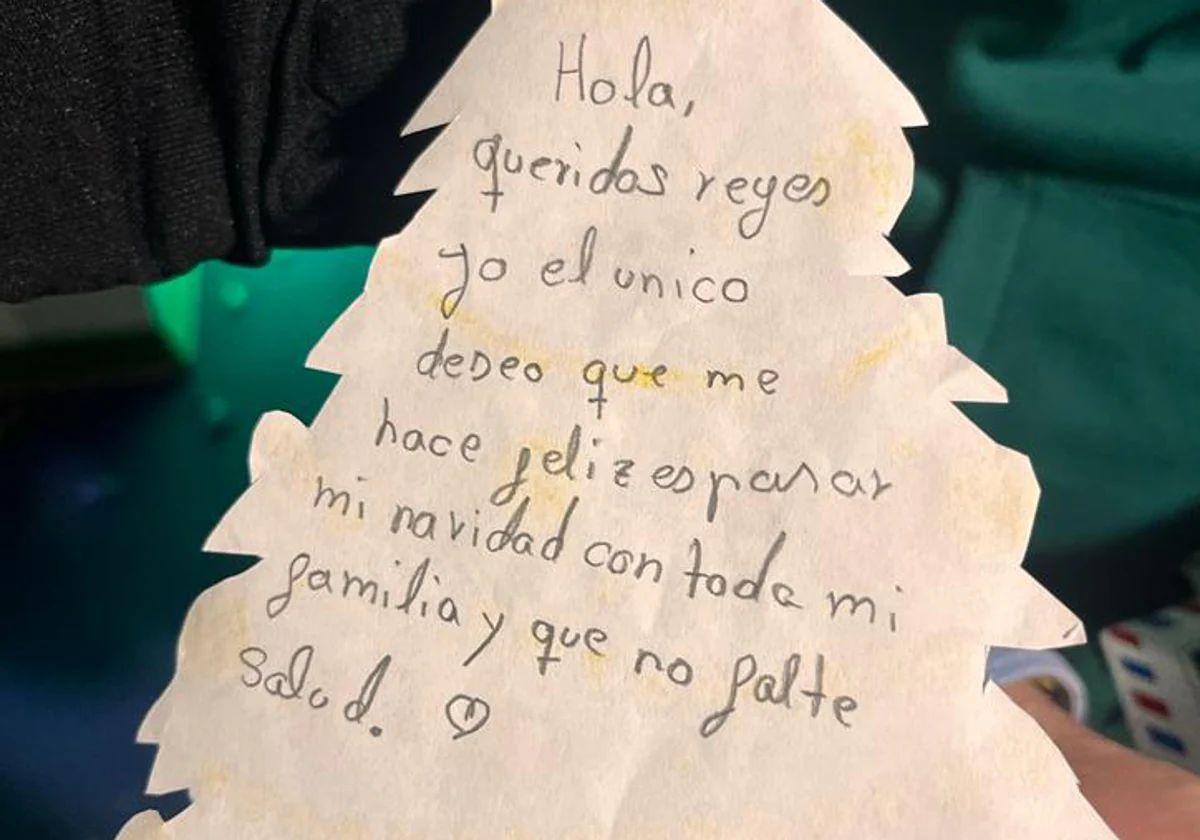 Hola,
queridos reyes
yo el unico
deseo que me
hace feliz es pasar
mi navidad con toda mi
familia y que no falte
salud. ♡